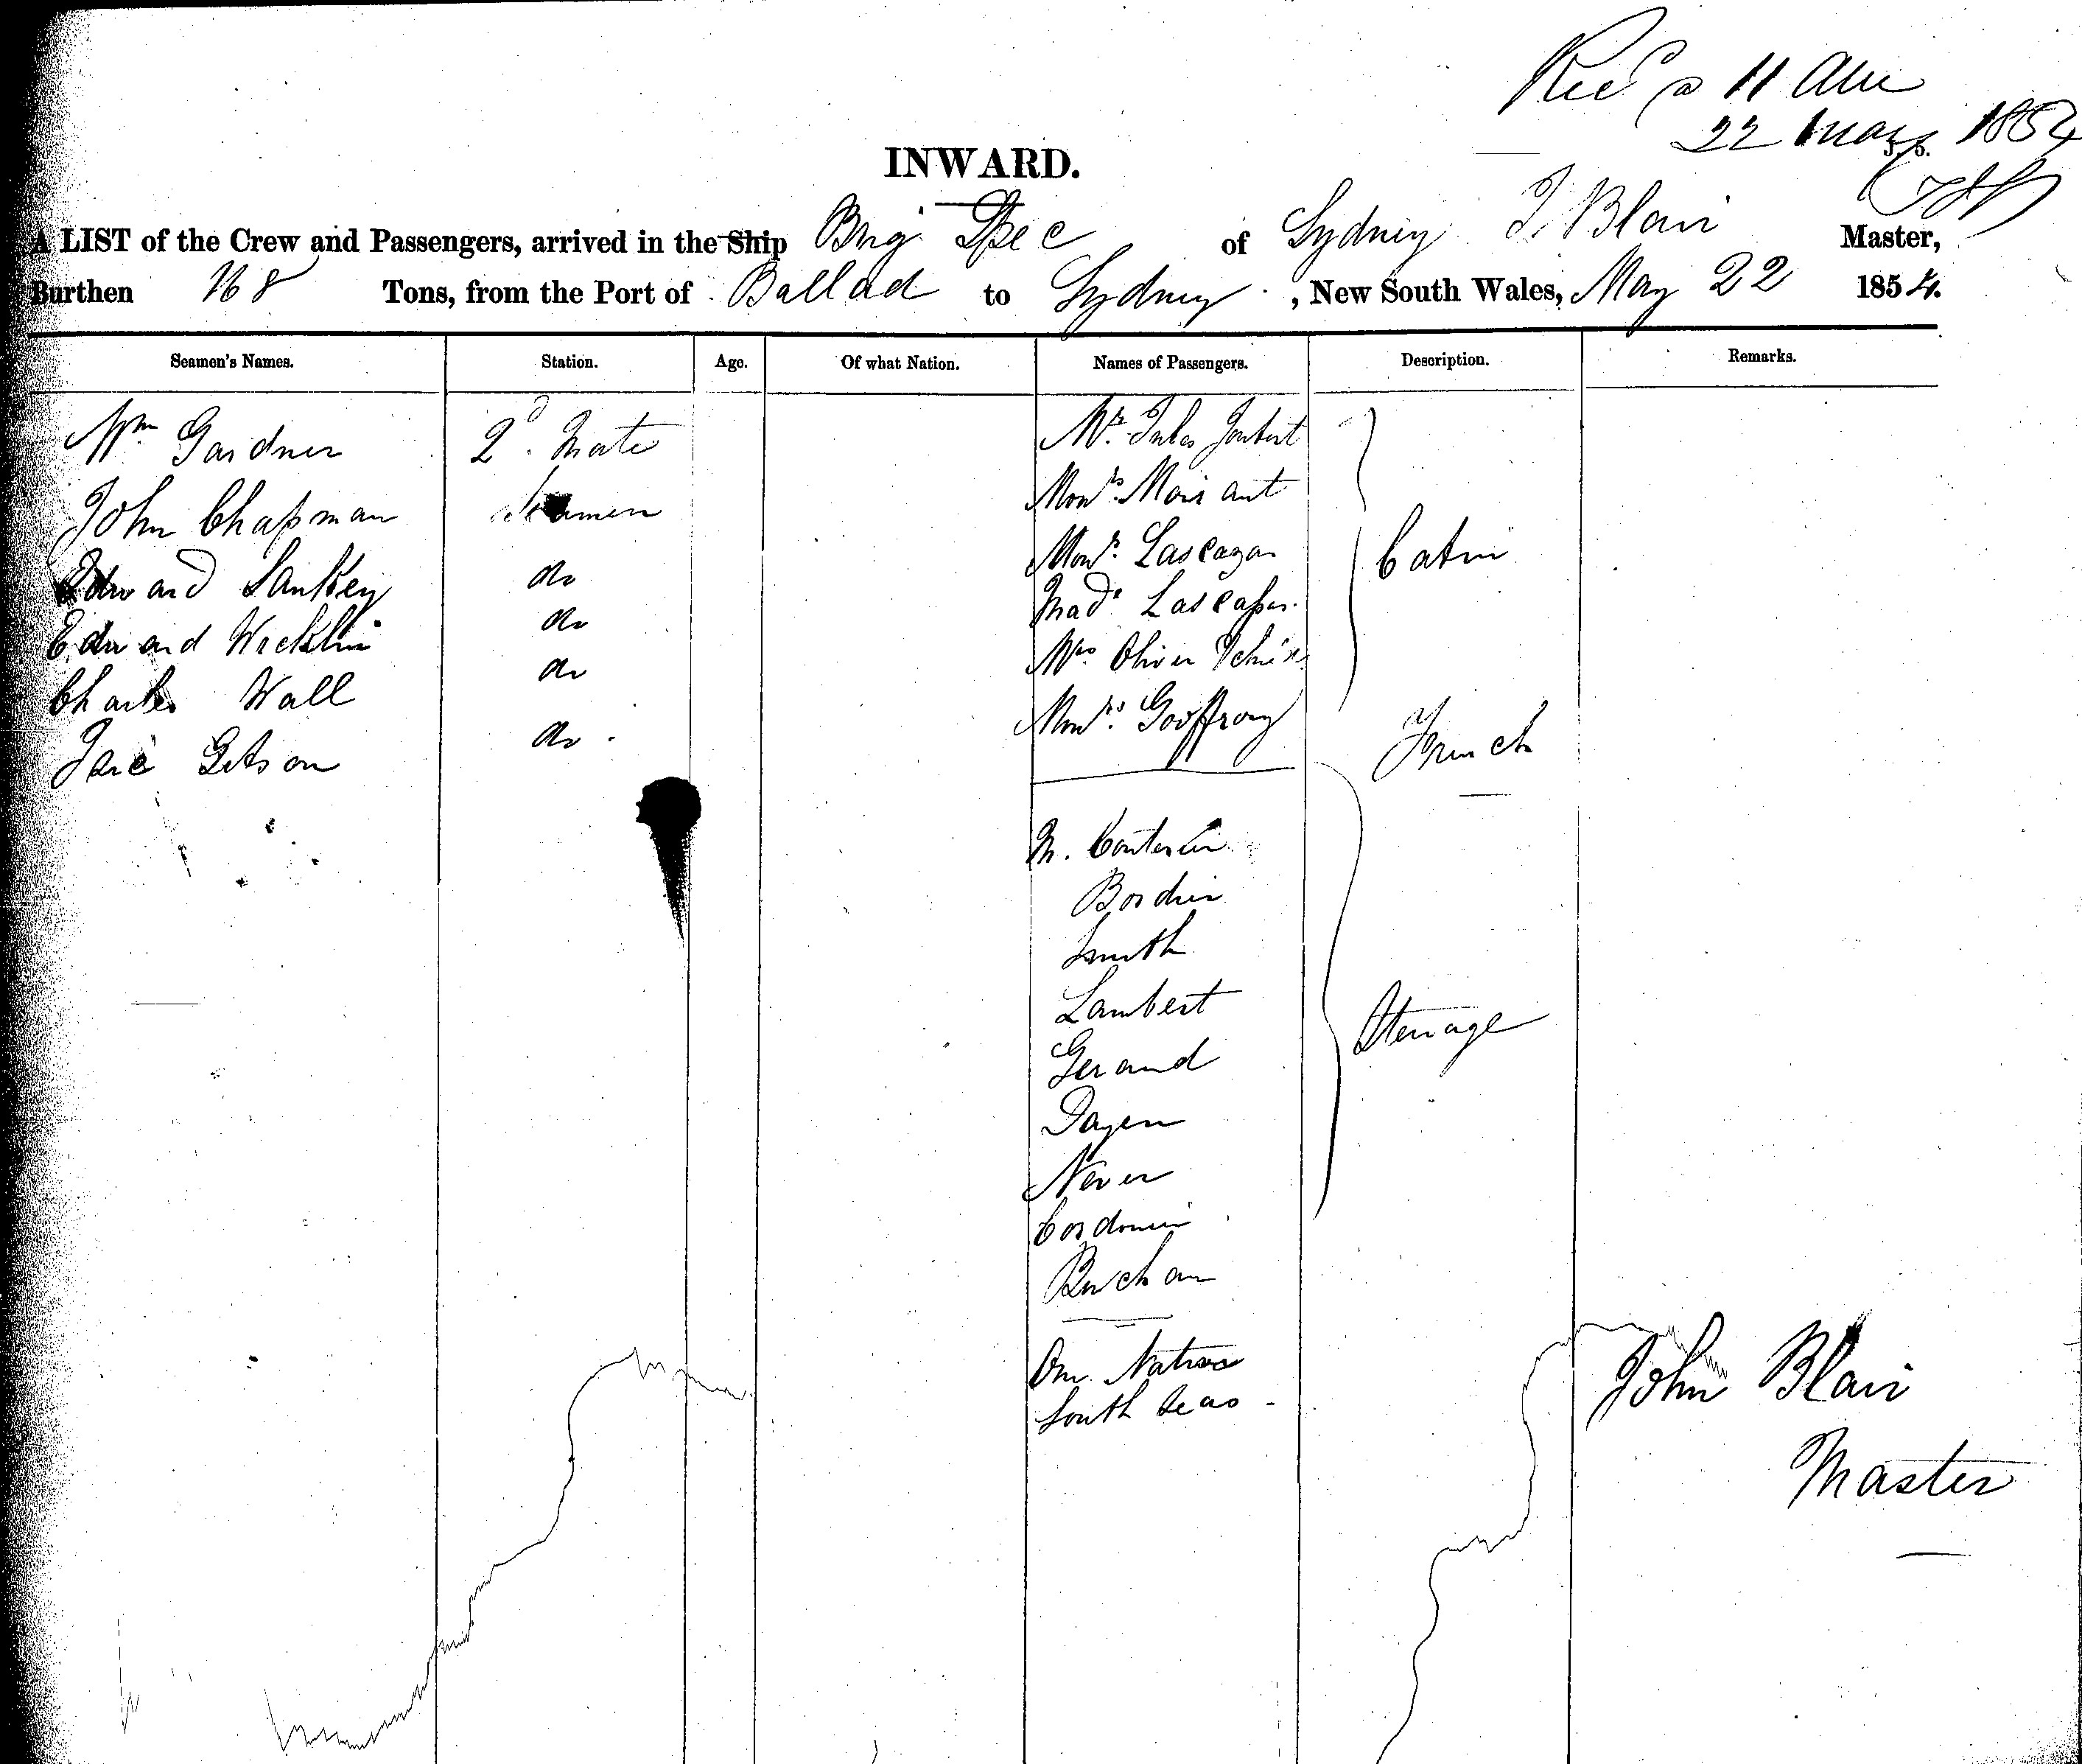 Recd @ 11 am
22 May 1854
INWARD.
A LIST of the Crew and Passengers, arrived in the Ship Brig Spec of Sydney J. Blair Master,
Burthen 168 Tons, from the Port of Ballad to Sydney, New South Wales, May 22 1854.
Seamen's Names. Station. Age. Of what Nation. Names of Passengers. Description. Remarks.
Wm Gardner 2d. Mate Mr. Jules Joubert
John Chapman Seamen Monrs.
Edward Sankey do Monrs.
Edward do Madе
Charles Wall do Mrs Oliver
do Monrs.
Cabin
French
M.
Bordier
Smith
Lambert
Gerand
Steerage
Dayen
Never
Buchan
One Native
South Seas -
John Blair
Master